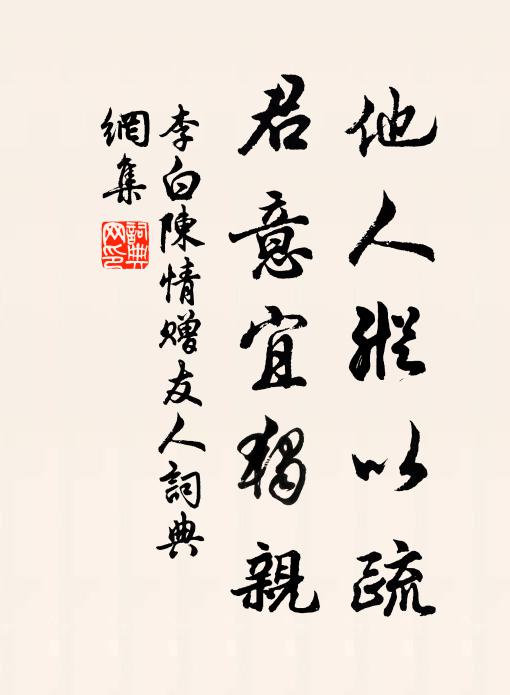 他人縱以疏
君意宜獨親
李白陳情贈友人詞典
網集
詞典
网印